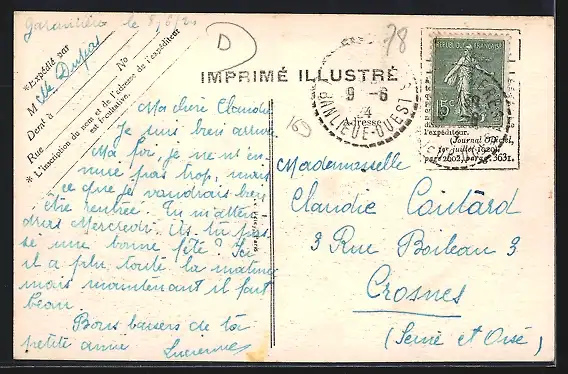 le 8/6/24
D
78
*Expédié par
M Elle Dupas
Dont à
Rue
No
* L'inscription du nom et de l'adresse de l'expéditeur
est facultative.
IMPRIMÉ ILLUSTRÉ
9 - 6
BANLIEUE-OUEST
Adresse
REPUBLIQUE FRANÇAISE
15c
l'expéditeur.
(Journal Officiel,
1er juillet
page 2602, par. 3631.
Ma chère Claudie
Je suis bien arrivée
Ma foi, je ne m'en
nuie pas trop, mais
ce que je voudrais bien
être rentrée. Tu m'atten
dras Mercredi. As tu pas
sé une bonne fête? Ici
il a plu toute la matinée
mais maintenant il fait
beau.
Bons baisers de ta
petite amie Lucienne
Mademoiselle
Claudie Coutard
3 Rue Boileau 3
Crosnes
(Seine et Oise)